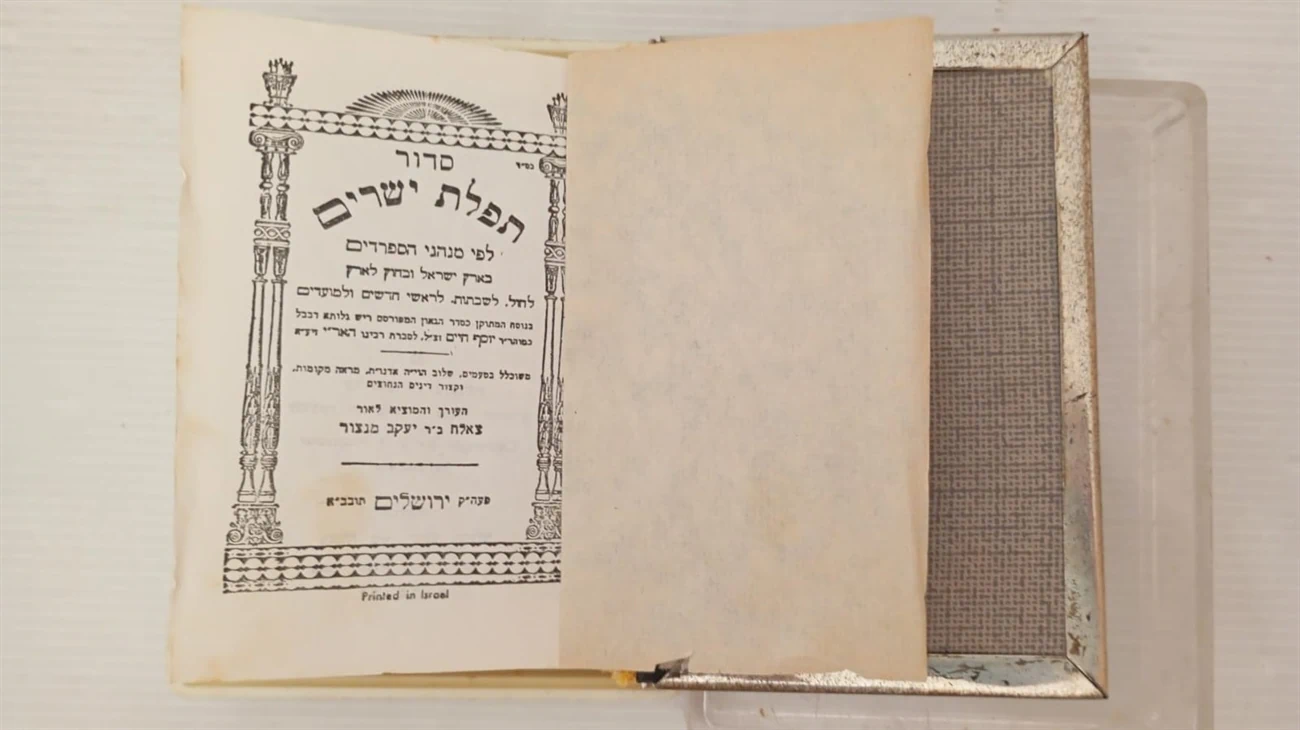 בס״ד
סדור
תפלת ישרים
לפי מנהגי הספרדים
בארץ ישראל ובחוץ לארץ
לחול, לשבתות, לראשי חדשים ולמועדים
בנוסח המתוקן כסדר הגאון המפורסם ריש גלותא דבבל
כמוהר״ר יוסף חיים זצ״ל, לסברת רבינו האר״י זיע״א
משוכלל בטעמים, שלוב הוי״ה אדנו״ת, מראה מקומות,
וקצור דינים הנחוצים
העורך והמוציא לאור
צאלח ב״ר יעקב מנצור
פעה״ק ירושלים תובב״א
Printed in Israel